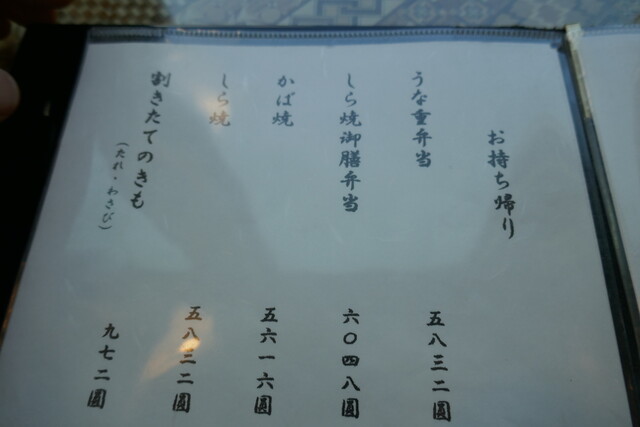 お持ち帰り
うな重弁当
五八三二圓
しら焼御膳弁当
六〇四八圓
かば焼
五六一六圓
しら焼
五八三二圓
割きたてのきも
(たれ・わさび)
九七二圓